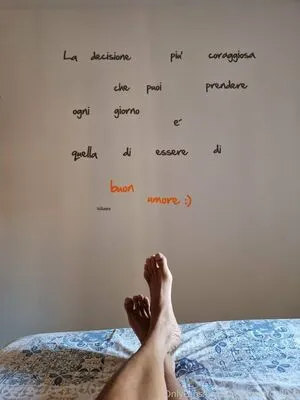 La decisione piu' coraggiosa
che puoi prendere
ogni giorno e'
quella di essere di
buon
umore :)
Voltaire